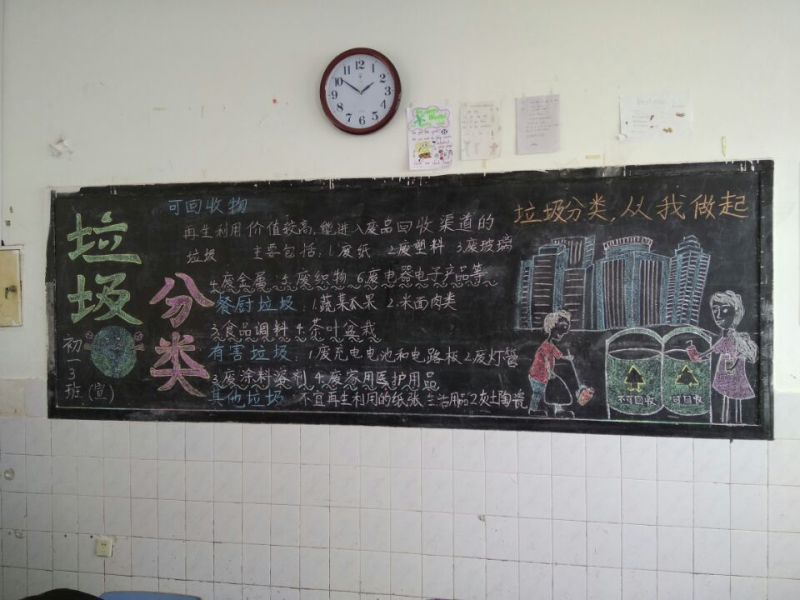 垃圾
分类
初一3班(宣)
可回收物
再生利用价值较高,能进入废品回收渠道的
垃圾 主要包括:1.废纸 2.废塑料 3.废玻璃
4.废金属 5.废织物 6.废电器电子产品等
餐厨垃圾:1.蔬菜瓜果 2.米面肉类
3.食品调料 4.茶叶盆栽
有害垃圾:1.废充电电池和电路板 2.废灯管
3.废涂料溶剂 4.废家用医护用品
其他垃圾:不宜再生利用的纸张 生活用品 2.灰土陶瓷
垃圾分类,从我做起
不可回收
可回收
12 1 2 3 4 5 6 7 8 9 10 11